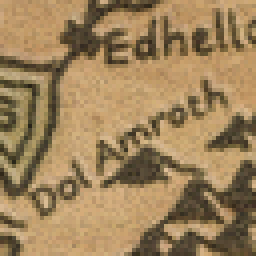 Edhello
Dol Amroth
s